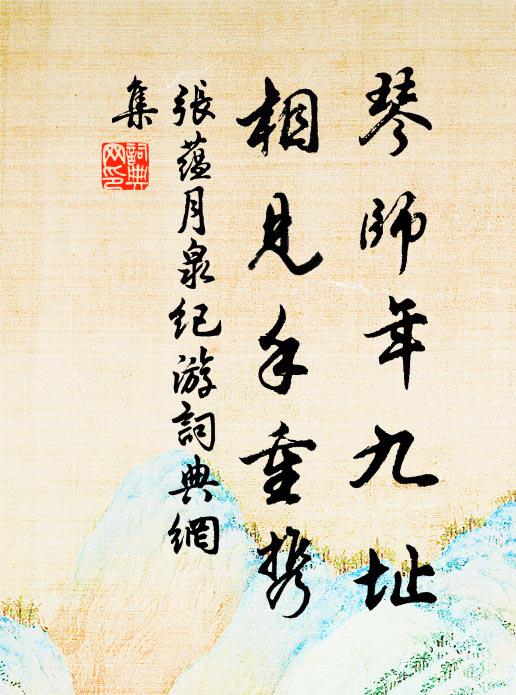 琴師年九址
相見手重携
張蘊月泉纪游詞典網
集
詞典
网印